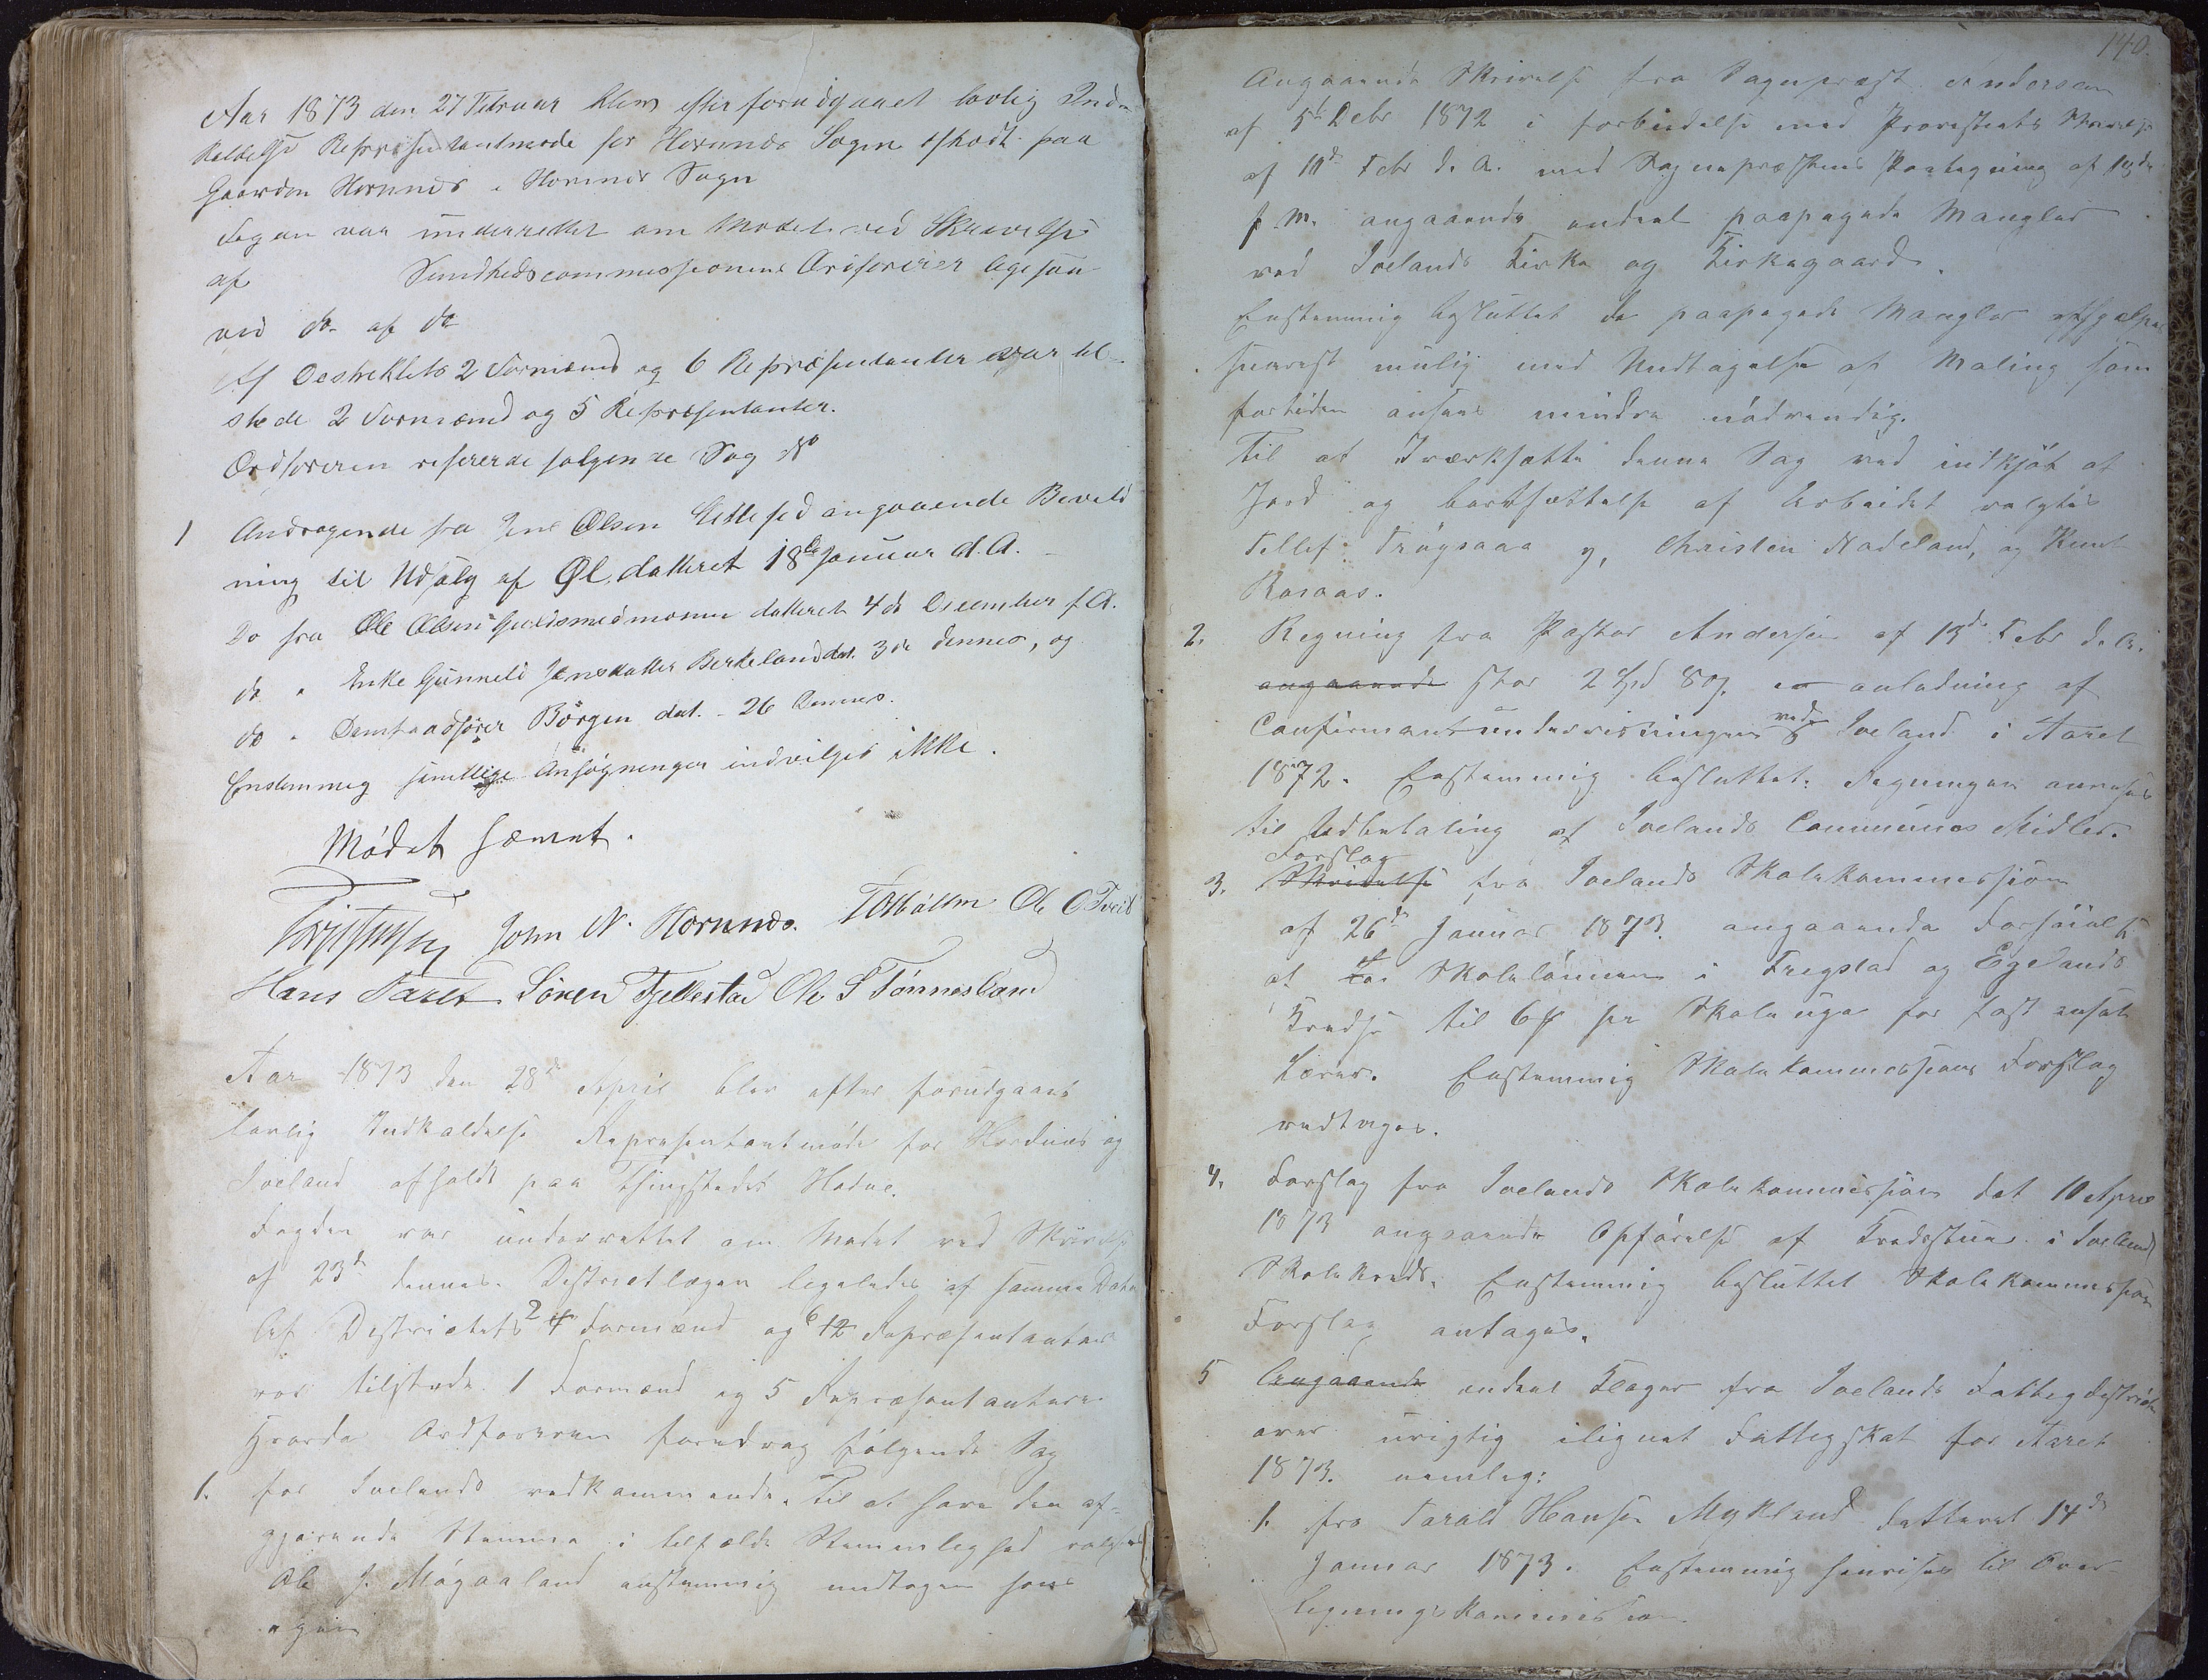 Aar 1873 den 27 Februar blev efter forudgaaet lovlig Ind-
kaldelse Repræsentantmøde for Hornnes Sogn afholdt paa
Gaarden Hornnes i Hornnes Sogn
Fogden var underrettet om Mødet ved Skrivelse
af Sundhedscommissionens Ordfører ligesaa
ved do af do
Af Destriktets 2 Formænd og 6 Repræsentanter var til-
stede 2 Formænd og 5 Repræsentanter.
Ordføreren refererde følgende Sag
1 Andragende fra Jens Olsen angaaende Bevild
ning til Udsalg af Øl datteret 18de Januar d. A.
Do fra Ole Olsen Guldsmedmoen datteret 4de December f. A.
do " Enke Gunneld Jensdatter Berkeland dat. 3de dennes, og
do " Børgen dat. 26 Dennes.
Enstemmig samtlige Ansøgninger indvilges ikke.
Mødet hævet.
John N. Hornnes. Ole O Tveit
Hans Søren Fjellestad Ole S Tønnesland
Aar 1873 den 28de April blev efter forudgaaet
lovlig Indkaldelse Repræsentantmøde for Hordnes og
Iveland afholdt paa Thingstedet Hodne.
Fogden var underrettet om Mødet ved Skrivelse
af 23de dennes. Destrictlægen ligeledes af samme Dato
Af Destrictets 2 4 Formænd og 6 12 Repræsentanter
var tilstede 1 Formænd og 5 Repræsentantere
Hvorda Ordføreren foredrog følgende Sag
1. for Ivelands vedkommende. Til at have den af-
gjørende Stemme i telfælde Stemmelighed valgtes
Ole J. Mögaaland enstemmig undtagen hans
egen
140.
Angaaende Skrivelse fra Sognepræst Andersen
af 5te Debr 1872 i forbindelse med Provstiets Skrivelse
af 10de Febr d. A. med Sognepræstens Paategning af 18de
f. M. angaaende endeel paapegede Mangler
ved Ivelands Kirke og Kirkegaard.
Enstemmig besluttet de paapegede Mangler afhjælpes
snarest mulig med Undtagelse af Maling som
fortiden ansees mindre nødvendig.
Til at Iværksætte denne Sag ved indkjøb af
Jord og bortsættelse af Arbeidet valgtes
Tellef Frøysaaa og, Christen Hodeland, og Knut
Rosaas.
2. Regning fra Pastor Andersen af 13de Febr d. A.
angaaende stor 2 Spd 80 s. en anledning af
Confirmantundervisningen ved Iveland i Aaret
1872. Enstemmig besluttet: Regningen anvises
til Udbetaling af Ivelands Communes Midler.
Forslag
3. Skrivelse fra Ivelands Skolekommession
af 26de Januar 1873. angaaende Forhøielse
af Skolelønnen i Fregstad og Egelands
Kredse til 6 ƒ per Skoleuge for fast ansat
Lærer. Enstemmig Skolekommessions Forslag
vedtages.
4. Forslag fra Ivelands Skolekommession dat 10 April
1873 angaaende Opførelse af Kredsstue i Iveland
Skolekreds. Enstemmig besluttet Skolekommession
Forslag antages.
5 Angaaende endeel Klager fra Ivelands Fattigdestrict
over urigtig ilignet Fattegskat for Aaret
1873. nemleg:
1. fra Tarald Hansen Mykland datteret 14de
Januar 1873. Enstemmig henvises til Over-
legningskommession.